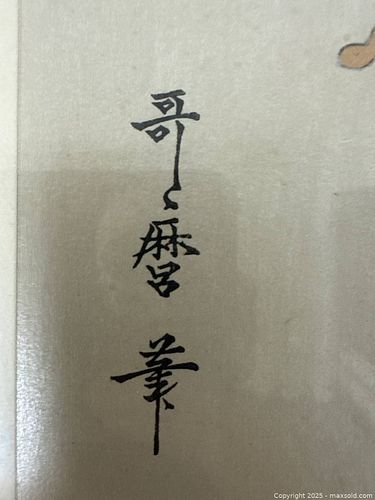 哥麿筆
Copyright 2025 - maxsold.com